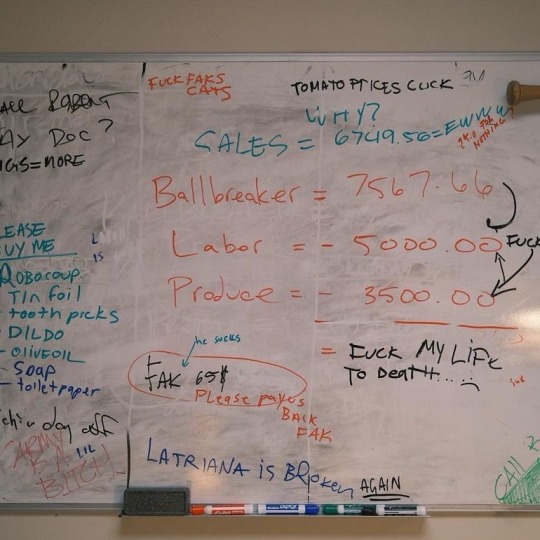 FUCK FAKS
CATS
TOMATO PRICES CUCK
WHY?
SALES = 6749.56 = EWWW
FOR
NOTHING?
Ballbreaker = 7567.66
Labor = - 5000.00
FUCK
Produce = - 3500.00
= FUCK MY LIFE
TO DEATH....
he sucks
FAK 65$
Please pay us
BACK
FAK
LATRIANA is BROKEN
AGAIN
CALL
AY DOC?
IGS=MORE
LEASE
UY ME
L
IS
ROBOCOUP
- Tin foil
- tooth picks
- DILDO
- OLIVE OIL
- SOAP
- toilet paper
day off
LIL
BITCH